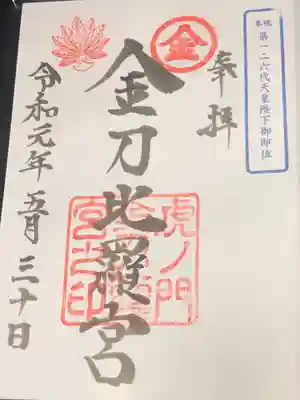 奉祝 第一二六代天皇陛下御即位
奉拝
金
金刀比羅宮
虎ノ門
金刀比羅
宮之印
令和元年五月三十日